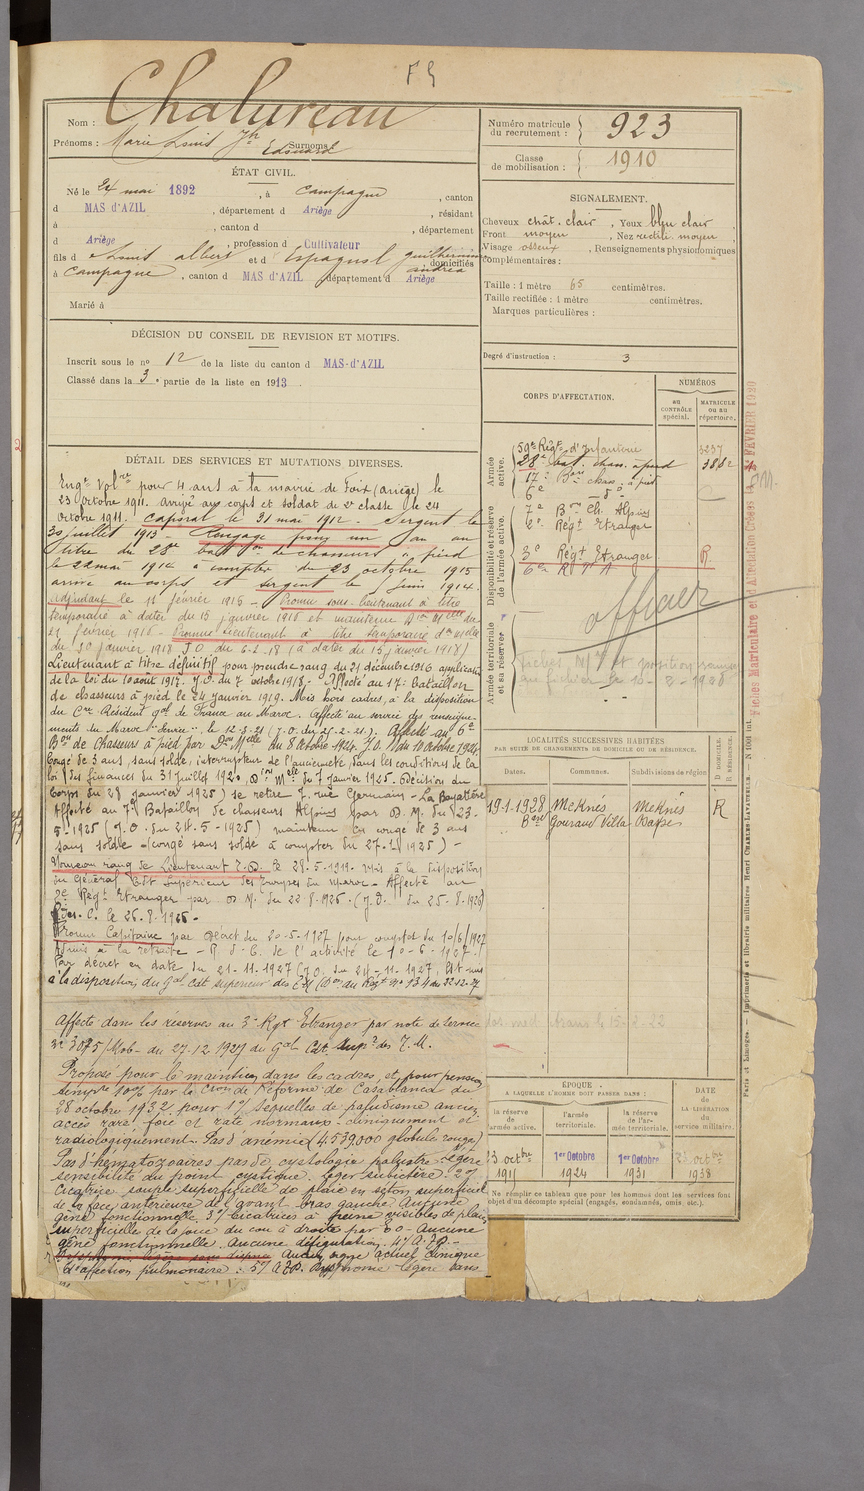 F 9
Nom : Chalureau
Prénoms : Marie Louis Jh Edouard Surnoms
ÉTAT CIVIL.
Né le 24 mai 1892, à Campagne, canton
d MAS D'AZIL, département d Ariège, résidant
à , canton d , département
d Ariège, profession d Cultivateur
fils d Louis albert et d Espagnol guilhermine andréa domiciliés
à Campagne, canton d MAS D'AZIL département d Ariège
Marié à
DÉCISION DU CONSEIL DE REVISION ET MOTIFS.
Inscrit sous le no 12 de la liste du canton d MAS-d'AZIL
Classé dans la 3e partie de la liste en 1913.
DÉTAIL DES SERVICES ET MUTATIONS DIVERSES.
Engé Volre pour 4 ans à la mairie de Foix (ariège) le
23 octobre 1911. arrivé au corps et soldat de 2e classe le 24
octobre 1911. Caporal le 31 mai 1912. Sergent le
30 juillet 1913. Rengagé pour un an au
titre du 28e baton de chasseurs à pied
le 22 mai 1914 à compter du 23 octobre 1915
arrivé au corps et sergent le juin 1914.
adjudant le 11 février 1916 - Promu sous-lieutenant à titre
temporaire à dater du 15 janvier 1916 et maintenu Don Melle du
21 février 1916 - Promu Lieutenant à titre temporaire don Melle
du 30 janvier 1918 J.O. du 6.2.18 (à dater du 15 janvier 1918)
Lieutenant à titre définitif pour prendre rang du 21 décembre 1916 application
de la loi du 10 août 1917. J.O. du 7 octobre 1918. - Affecté au 17e bataillon
de chasseurs à pied le 24 janvier 1919. Mis hors cadres, à la disposition
du Cre Résident gal de France au Maroc. Affecté au service des renseigne-
ments du Maroc le 12-2-21 (J.O. du 25-2-21). Affecté au 6e
Bon de Chasseurs à pied par Don Melle du 8 octobre 1924. J.O. du 10 octobre 1924
Congé de 3 ans, sans solde, interruptif de l'ancienneté, dans les conditions de la
loi des finances du 31 juillet 1920, Don Melle du 7 janvier 1925. Décision du
Corps du 28 janvier 1925) se retire 7, rue Germain - La Bayatière
Affecté au 7e Bataillon de chasseurs Alpins par D. M. du 23-
5-1925 (J.O. du 24-5-1925) maintenu en congé de 3 ans
sans solde - (congé sans solde à compter du 27-1-1925) -
Nouveau rang de Lieutenant T.D. le 28-5-1919. mis à la disposition
du Général Cdt Supérieur des Troupes du Maroc - Affecté au
2e Régt Etranger par D.M. du 22-8-1926 - (J.O. du 25-8-1926)
le 26-8-1926 -
Promu Capitaine par Décret du 20-5-1927 pour compter du 10/6/1927
Admis à la retraite - R. d. C. de l'activité le 10-6-1927.
Par décret en date du 21-11-1927 (J.O. du 24-11-1927, est mis
à la disposition du Gal Cdt supérieur des T.M.
Affecté dans les réserves au 3e Rgt Etranger par note de service
no 3075/Mob - du 27-12-1927 du Gal Cdt Supr des T.M.
Proposé pour le maintien dans les cadres et pour pension
tempre 10% par la Cion de Réforme de Casablanca du
28 octobre 1932 pour 1°/ séquelles de paludisme ancien
accès rares, foie et rate normaux - cliniquement et
radiologiquement - Pas d'anémie (4.539.000 globules rouges)
Pas d'hématozoaires pas de cystologie palustre - légère
sensibilité du point cystique. Léger subictère. 2°/
Cicatrice souple superficielle de plaie en séton superficiel
de la face antérieure de l'avant-bras gauche. Aucune
gêne fonctionnelle. 3°/ Cicatrices à peine visibles de plaie
superficielle de la joue et du cou à droite par E.O - Aucune
gêne fonctionnelle. Aucune défiguration. 4°/ A.J.P. -
Aucun signe actuel clinique
d'affection pulmonaire : 5°/ A.J.P. légère sans
Numéro matricule du recrutement : 923
Classe de mobilisation : 1910
SIGNALEMENT.
Cheveux chât. clair, Yeux bleu clair,
Front moyen, Nez rectil. moyen,
Visage osseux, Renseignements physiodomiques
complémentaires :
Taille : 1 mètre 65 centimètres.
Taille rectifiée : 1 mètre centimètres.
Marques particulières :
Degré d'instruction : 3
CORPS D'AFFECTATION.
NUMÉROS
au CONTRÔLE spécial.
MATRICULE ou au répertoire.
Armée active.
59e Régt d'Infanterie 3237
28e bat. chass. à pied 3882
17e Bon chass. à pied
6e - d° -
Disponibilité et réserve de l'armée active.
7e Bon Ch. Alpins
2e Régt Etranger
3e Régt Etranger R
Armée territoriale et sa réserve
officier
Fiches Matriculaire et d'Affection Créées la FÉVRIER 1930
LOCALITÉS SUCCESSIVES HABITÉES
PAR SUITE DE CHANGEMENTS DE DOMICILE OU DE RÉSIDENCE.
Dates. Communes. Subdivisions de région D. DOMICILE. R. RÉSIDENCE.
19-1-1928 Meknès Meknès R
Gouraud Villa
ÉPOQUE
A LAQUELLE L'HOMME DOIT PASSER DANS :
la réserve de l'armée active.
l'armée territoriale.
la réserve de l'armée territoriale.
DATE de LA LIBÉRATION du service militaire.
23 octbre 1915
1er Octobre 1924
1er Octobre 1931
23 octbre 1938
Ne remplir ce tableau que pour les hommes dont les services font
objet d'un décompte spécial (engagés, condamnés, omis, etc.).
Paris et Limoges. — Imprimerie et librairie militaires Henri CHARLES-LAVAUZELLE.